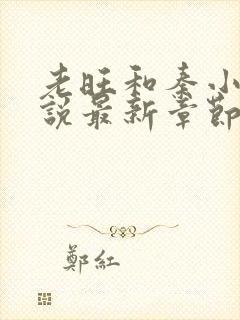 老旺和秦小
說最新章節
鄭紅